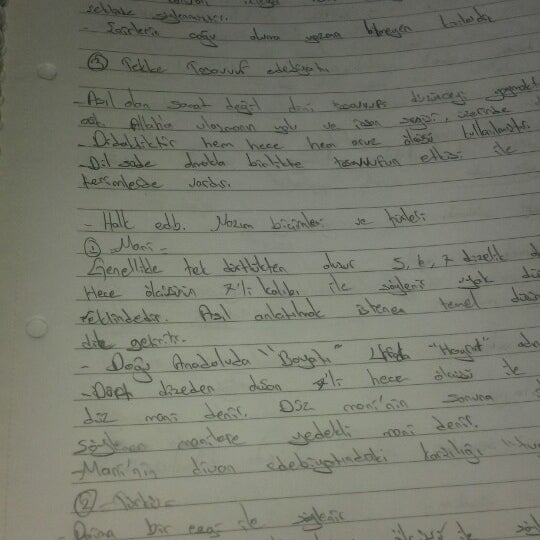 şekilde söylenmiştir.
- Eserlerin çoğu okuma yazma bilmeyen
③ Tekke Tasavvuf edebiyatı
- Asıl olan sanat değil dini tasavvufi düşünceyi yaymaktır
aşk, Allah'a ulaşmanın yolu ve insan sevgisi, üzerinde
- Didaktiktir hem hece hem aruz ölçüsü kullanılmıştır.
- Dil sade olmakla birlikte tasavvufun etkisi ile
vardır.
- Halk edb. Nazım biçimleri ve türleri
① Mani -
Genellikle tek dörtlükten oluşur 5, 6, 7 dizelik
Hece ölçüsünün 7'li kalıbı ile söylenir uyak
şeklindedir. Asıl anlatılmak istenen temel
dile getirilir.
- Doğu Anadoluda "Bayatı" Urfada "Hoyrat"
- Dört dizeden oluşan 7'li hece ölçüsü ile
düz mani denir. Düz mani'nin sonuna
söylenen manilere yedekli mani denir.
- Mani'nin divan edebiyatındaki karşılığı
② - Türkü -
bir ezgi ile söylenir
ile